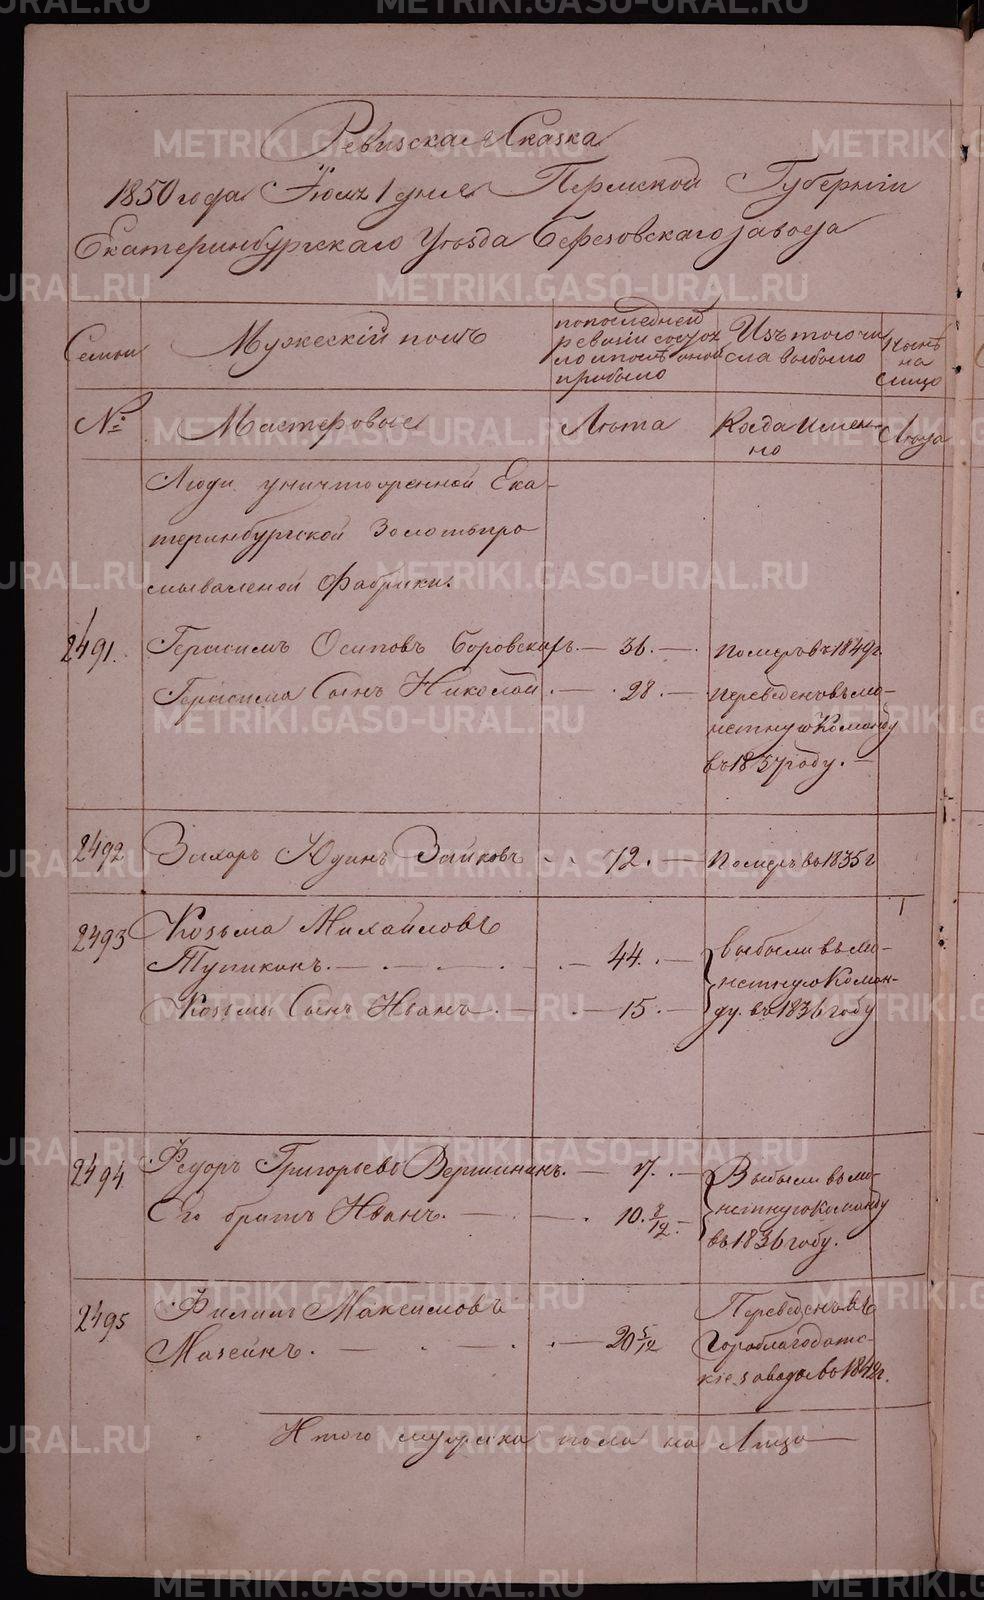 Ревизская Сказка
1850 года Июля 1 дня Пермской Губернiи
Екатеринбургскаго Уѣзда Березовскаго завода
Семьи
Мужескiй полъ
по последней
ревизiи состоя
ло и послѣ оной
прибыло
Изъ того чи
сла выбыло
Нынѣ
на
лицо
№
Мастеровые
Лѣта
Когда Имен-
но
Лѣта
Люди уничтоженной Ека-
теринбургской Золотопро
мываленой Фабрики.
2491. Герасимъ Осиповъ Боровскихъ. — 36. — Померъ въ 1849 г.
Герасима Сынъ Николай. — 28. — Переведенъ въ мѣ-
стную Команду
въ 1837 году. —
2492 Захаръ Юдинъ Зайковъ — 72. — Померъ въ 1835 г
2493 Козьма Михайловъ
Тупикинъ. — 44. — Выбыли въ мѣ-
стную Коман-
Козьмы Сынъ Иванъ. — 15. — ду. въ 1836 году
2494 Федоръ Григорьевъ Вершининъ. — 17. — Выбыли въ мѣ-
стную Команду
Его братъ Иванъ. — 10. 8/12. — въ 1836 году.
2495 Филипъ Максимовъ
Мазеинъ. — 20 5/12
Переведенъ въ
Гороблагодатс-
кiе заводы въ 1842 г.
Итого мужска пола на Лицо —
METRIKI.GASO-URAL.RU